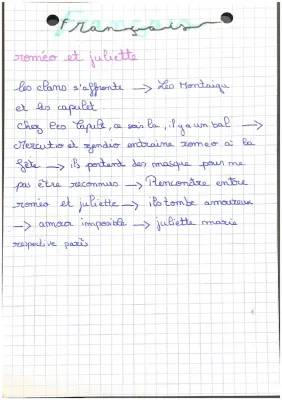 Français
roméo et juliette
les clans s'affronte → Les Montaigu
et les capulet
Chez les Capule, ce soir la, il y a un bal →
Mercutio et zendio entraine romeo a la
fête → ils portent des masque pour ne
pas être reconnues → Rencontre entre
roméo et juliette → ils tombe amoureux
→ amour imposible → juliette marie
respective paris